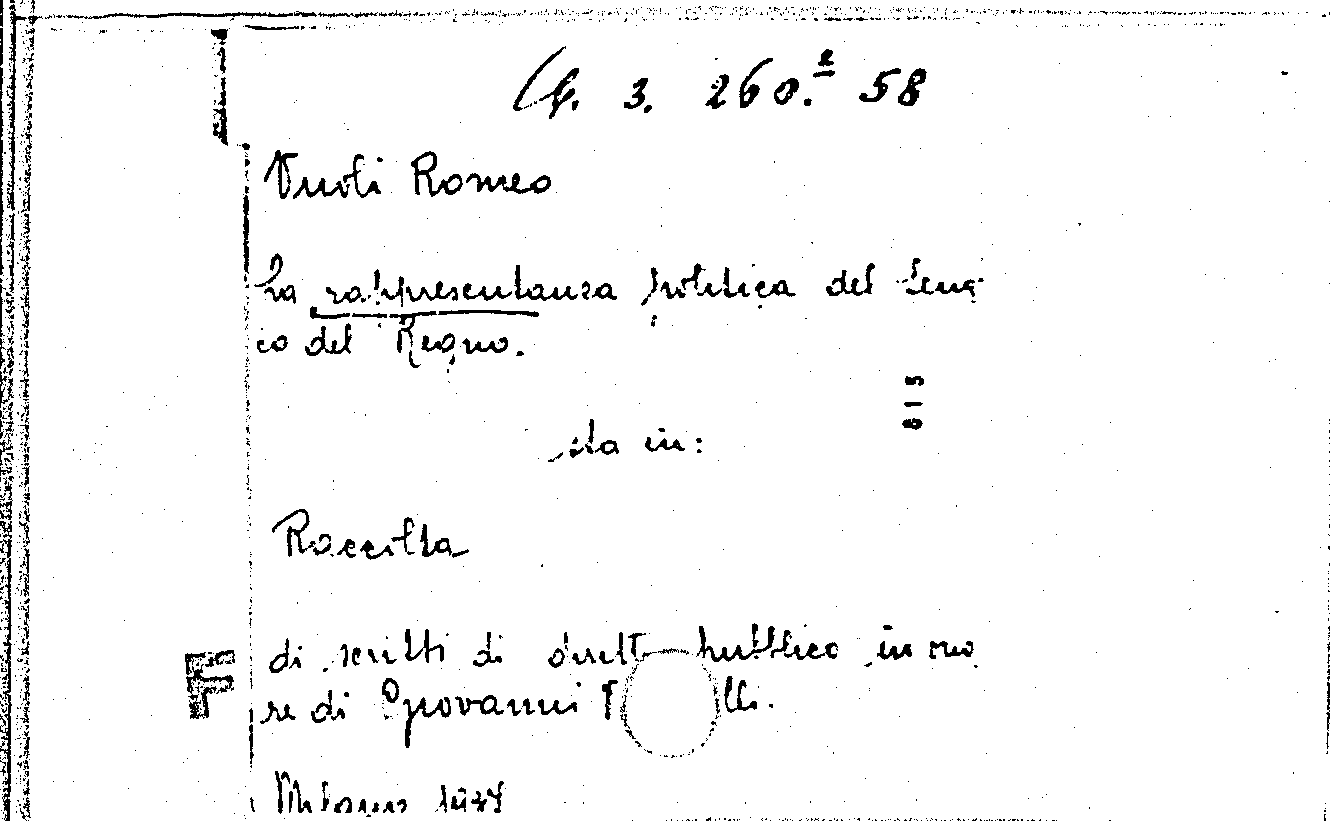 G. 3. 260.2 58
Vuoli Romeo
La rappresentanza politica del Leng
co del Regno.
sta in:
Raccolta
di scritti di diritto pubblico in ono
re di Giovanni
Milano
F